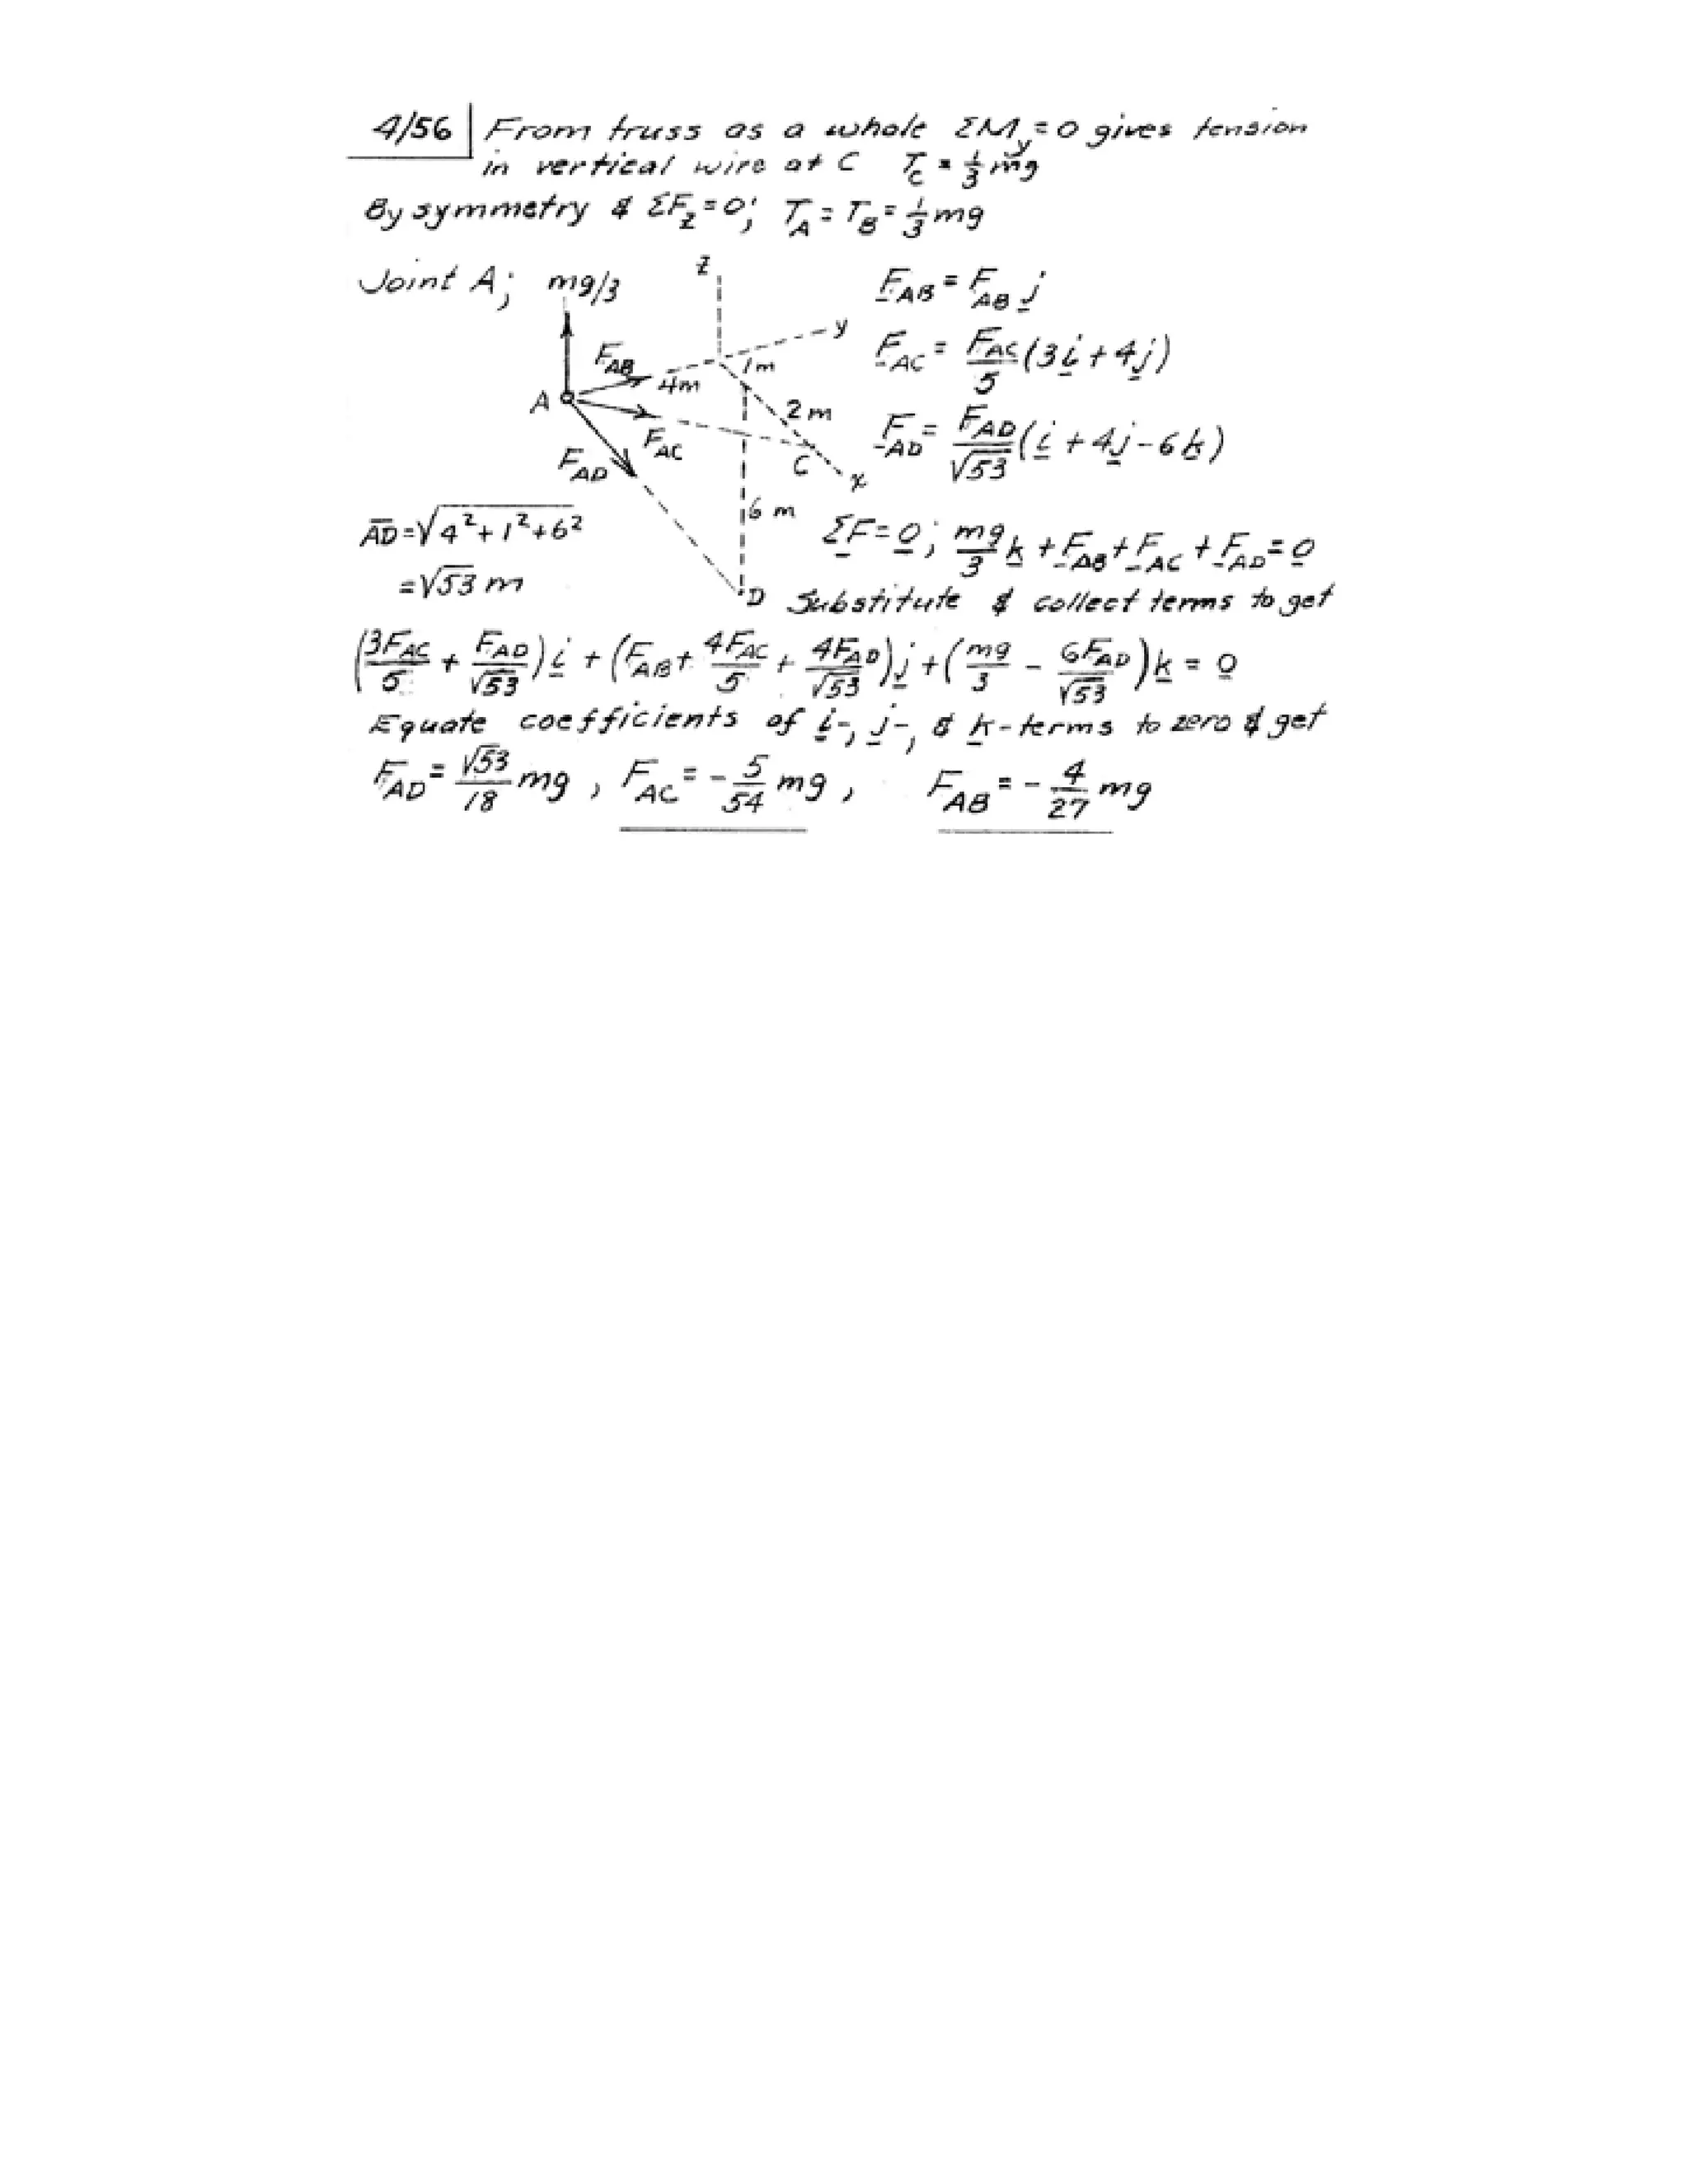 4/56 From truss as a whole ΣM_y = 0 gives tension
in vertical wire at C T_C = 1/3 mg
By symmetry & ΣF_z = 0; T_A = T_B = 1/3 mg
Joint A; mg/3
z
y
F_AB
4m
1m
A
2m
F_AC
C
x
F_AD
6 m
D
F_AB = F_AB j
F_AC = F_AC/5 (3i + 4j)
F_AD = F_AD/√53 (i + 4j - 6k)
AD = √(4² + 1² + 6²)
= √53 m
ΣF = 0; mg/3 k + F_AB + F_AC + F_AD = 0
Substitute & collect terms to get
(3F_AC/5 + F_AD/√53) i + (F_AB + 4F_AC/5 + 4F_AD/√53) j + (mg/3 - 6F_AD/√53) k = 0
Equate coefficients of i-, j-, & k-terms to zero & get
F_AD = √53/18 mg, F_AC = - 5/54 mg, F_AB = - 4/27 mg